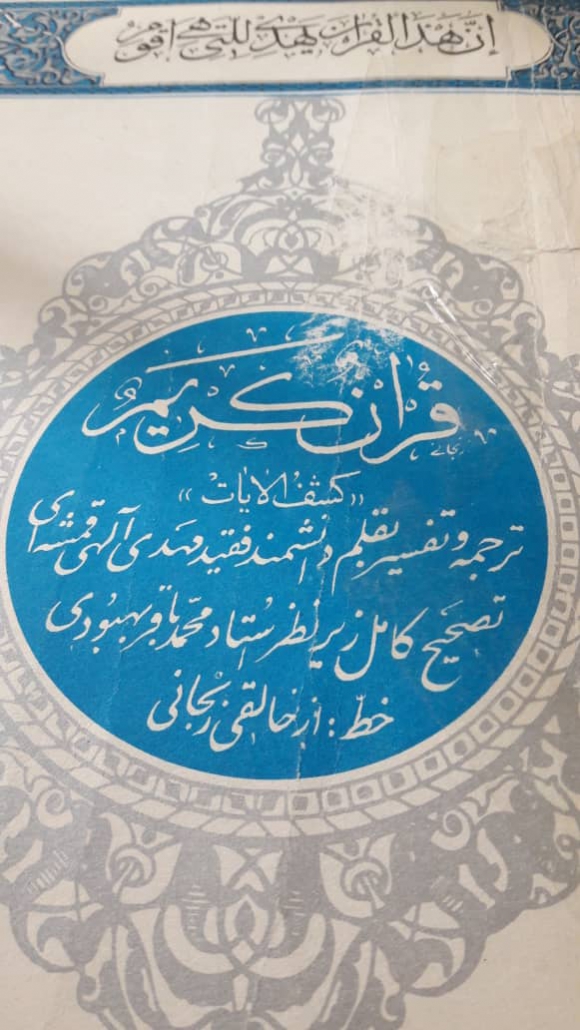 إنّ هذا القرآن يهدي للتي هي أقوم
قرآن کریم
زنجانی
«کشف الآیات»
ترجمه و تفسیر بقلم دانشمند فقید مهدی آلهی قمشه‌ای
تصحیح کامل زیر نظر استاد محمّد باقر بهبودی
خطّ: از خالقی زنجانی